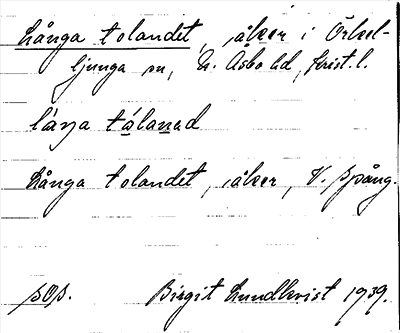 Långa tolandet, åker i Örkel-
ljunga sn, N. Åsbo hd, Krist. l.
låŋa tålanad
Långa tolandet, åker, V. Spång.
sOp. Birgit Lundkvist 1939.